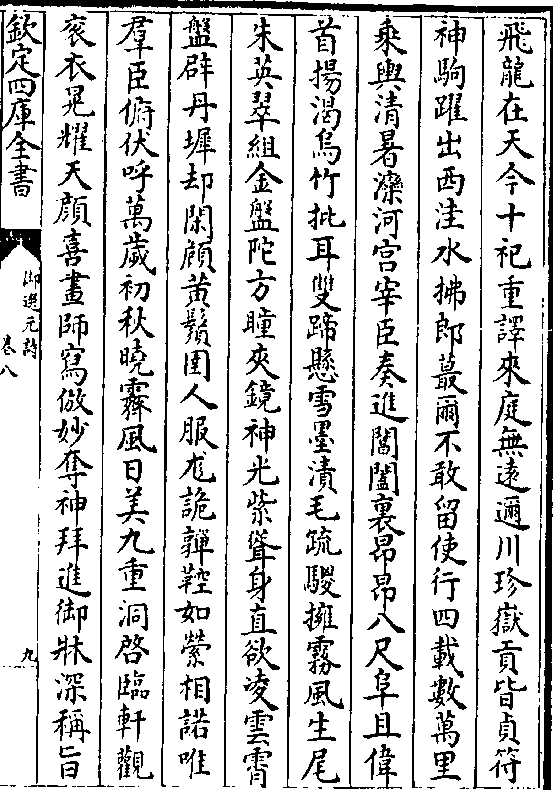 飛龍在天今十祀重譯來庭無遠邇川珍嶽貢皆貞符
神駒躍出西洼水拂郎蕞爾不敢留使行四載數萬里
乘輿清暑灤河宫宰臣奏進閶闔裏昂昂八尺阜且偉
首揚渴烏竹批耳雙蹄懸雪墨漬毛疏騣擁霧風生尾
朱英翠組金盤陀方瞳夾鏡神光紫聳身直欲凌雲霄
盤辟丹墀却閑顧黄鬚圉人服尨詭嚲鞚如縈相諾唯
羣臣俯伏呼萬歲初秋曉霽風日美九重洞啓臨軒觀
衮衣晃耀天顔喜畫師寫倣妙奪神拜進御牀深稱旨
欽定四庫全書
御選元詩
卷八
九